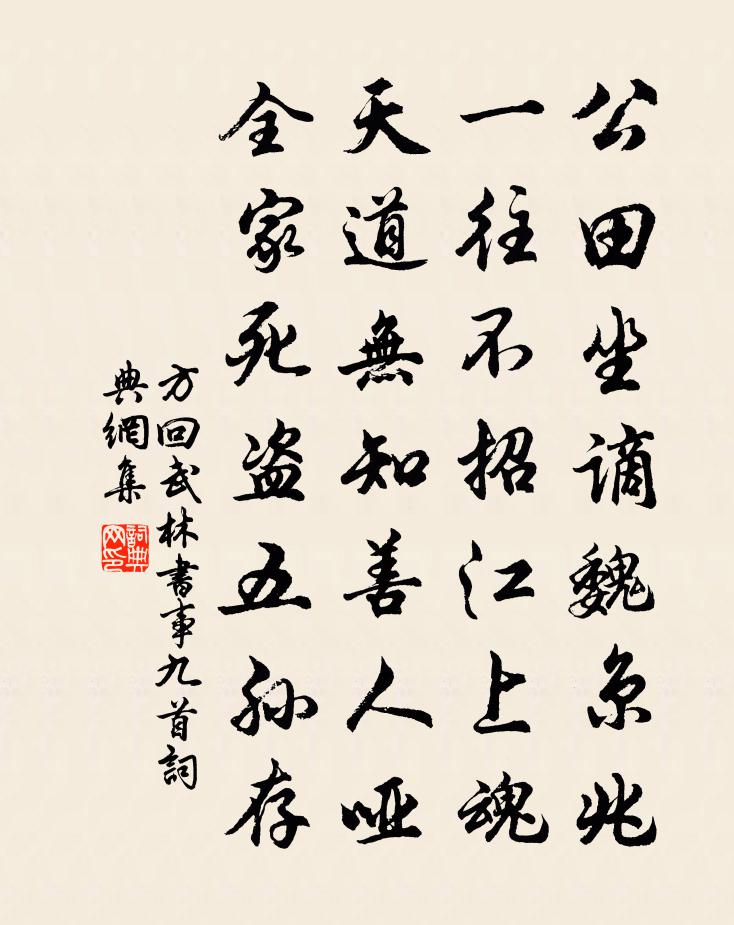 公田坐謫魏京兆
一往不招江上魂
天道無知善人啞
全家死盗五孫存
方回武林書事九首詞
典網集
詞典
网印